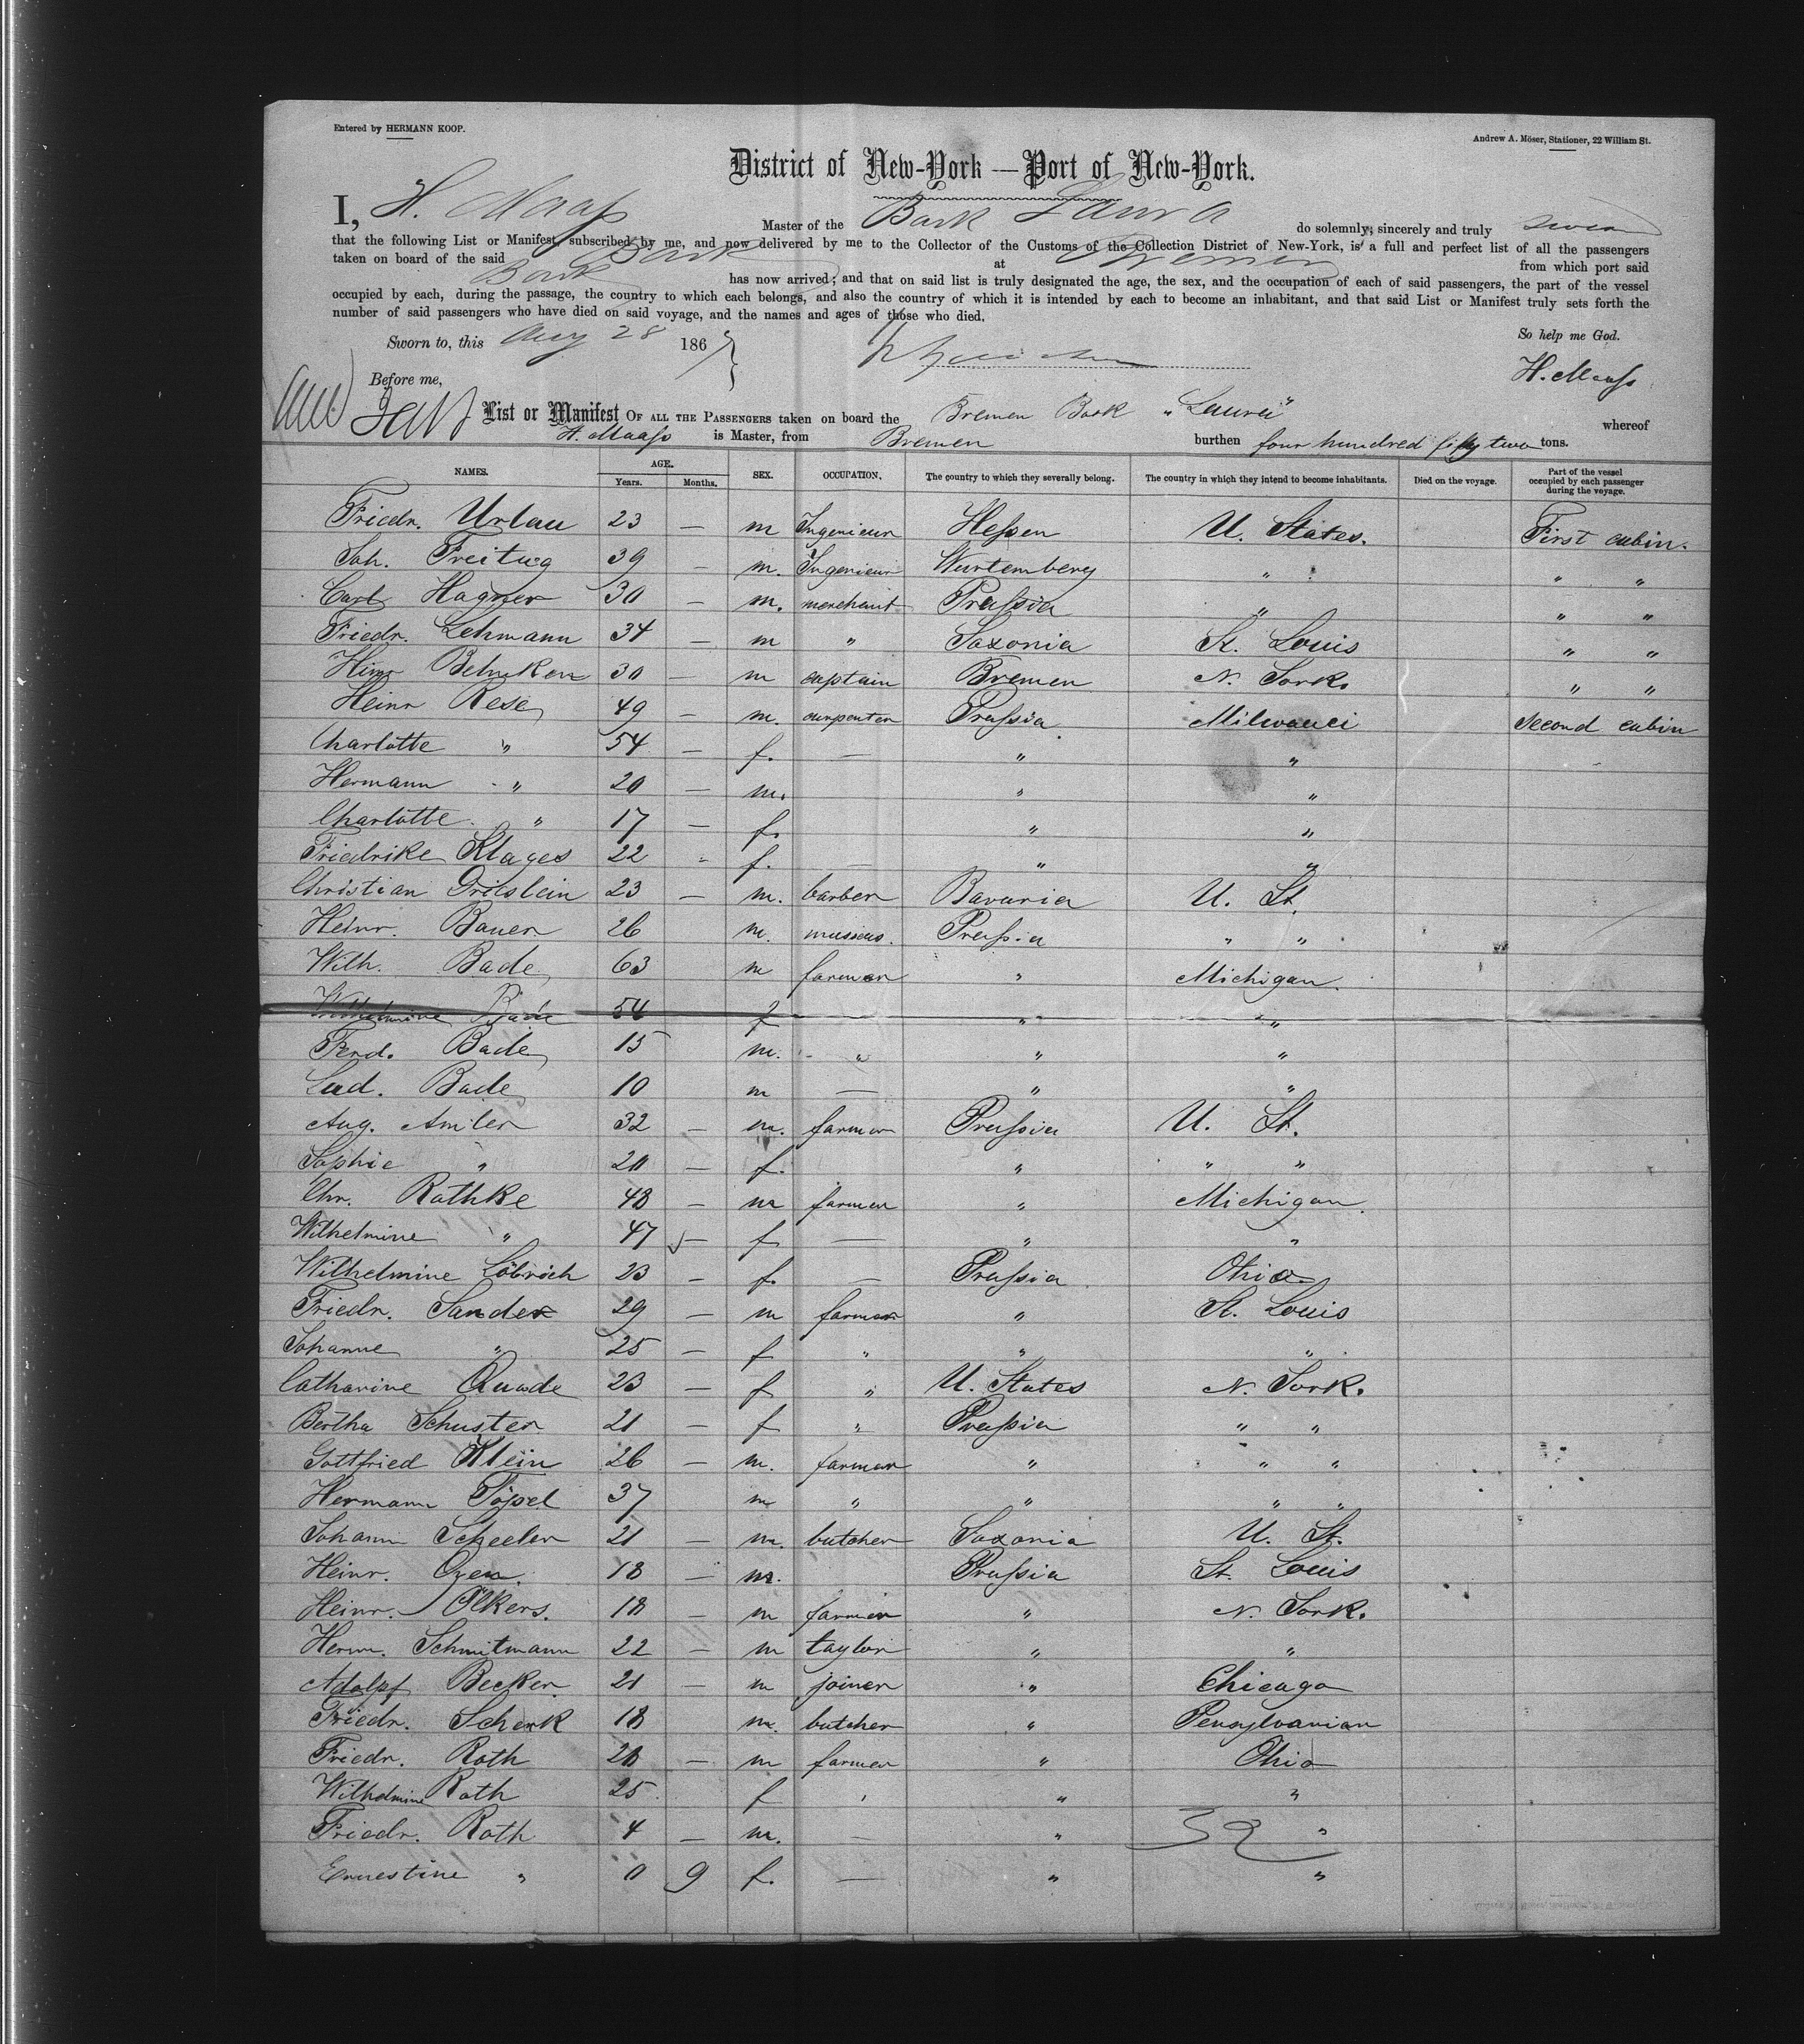 Entered by HERMANN KOOP.
Andrew A. Möser, Stationer, 22 William St.
District of New-York — Port of New-York.
I, H. Maaß Master of the Bark Laura do solemnly, sincerely and truly swear
that the following List or Manifest, subscribed by me, and now delivered by me to the Collector of the Customs of the Collection District of New-York, is a full and perfect list of all the passengers
taken on board of the said Bark at Bremen from which port said
Bark has now arrived; and that on said list is truly designated the age, the sex, and the occupation of each of said passengers, the part of the vessel
occupied by each, during the passage, the country to which each belongs, and also the country of which it is intended by each to become an inhabitant, and that said List or Manifest truly sets forth the
number of said passengers who have died on said voyage, and the names and ages of those who died.
So help me God.
Sworn to, this Aug 28 186
H. Maaß
Before me,
List or Manifest OF ALL THE PASSENGERS taken on board the Bremen Bark "Laura" whereof
H. Maaß is Master, from Bremen burthen four hundred fifty two tons.
NAMES. AGE. Years. Months. SEX. OCCUPATION. The country to which they severally belong. The country in which they intend to become inhabitants. Died on the voyage. Part of the vessel occupied by each passenger during the voyage.
Friedr. Urlau 23 — m Ingenieur Heßen U. States. First cabin.
Joh. Freitag 39 — m. Ingenieur Wurtemberg " " " "
Carl Hagner 30 — m. merchant Prußia " " "
Friedr. Lehmann 34 — m " Saxonia St. Louis " "
Hinr Behnken 30 — m captain Bremen N. York. " "
Heinr Rese 49 — m. carpenter Prußia Milwauci Second cabin
Charlotte " 54 — f. — " "
Hermann " 20 — m. " "
Charlotte " 17 — f. " "
Friedrike Klages 22 - f. — " "
Christian Grieslein 23 — m. barber Bavaria U. St.
Heinr. Bauer 26 m. musicus. Prußia " "
Wilh. Bade 63 m farmer " Michigan.
Wilhelmine Bade 54 f " "
Ferd. Bade 15 m. " " "
Lud. Bade 10 m — " "
Aug. Amiler 32 — m. farmer Prußia U. St.
Sophie " 20 — f. " " "
Chr. Rathke 48 — m farmer " Michigan.
Wilhelmine " 47 — f — " "
Wilhelmine Löbrich 23 — f. — Prußia Ohio
Friedr. Sander 29 — m farmer " St. Louis
Johanne " 25 — f " " "
Catharine Quade 23 — f " U. States N. York.
Bertha Schuster 21 — f " Prußia " "
Gottfried Klein 26 — m. farmer " " "
Hermann Töpel 37 m " " " "
Johann Scheeler 21 — m. butcher Saxonia U. St.
Heinr. 18 — m. Prußia St. Louis
Heinr. Ölkers. 18 — m farmer " N. York.
Herm. Schmitmann 22 — m taylor " "
Adolpf Becker 21 — m joiner " Chicago
Friedr. Schenk 18 m. butcher " Pensylvanian
Friedr. Roth 28 — m farmer " Ohio
Wilhelmine Roth 25 f " " "
Friedr. Roth 4 — m. — " "
Ernestine " 0 9 f. — " "